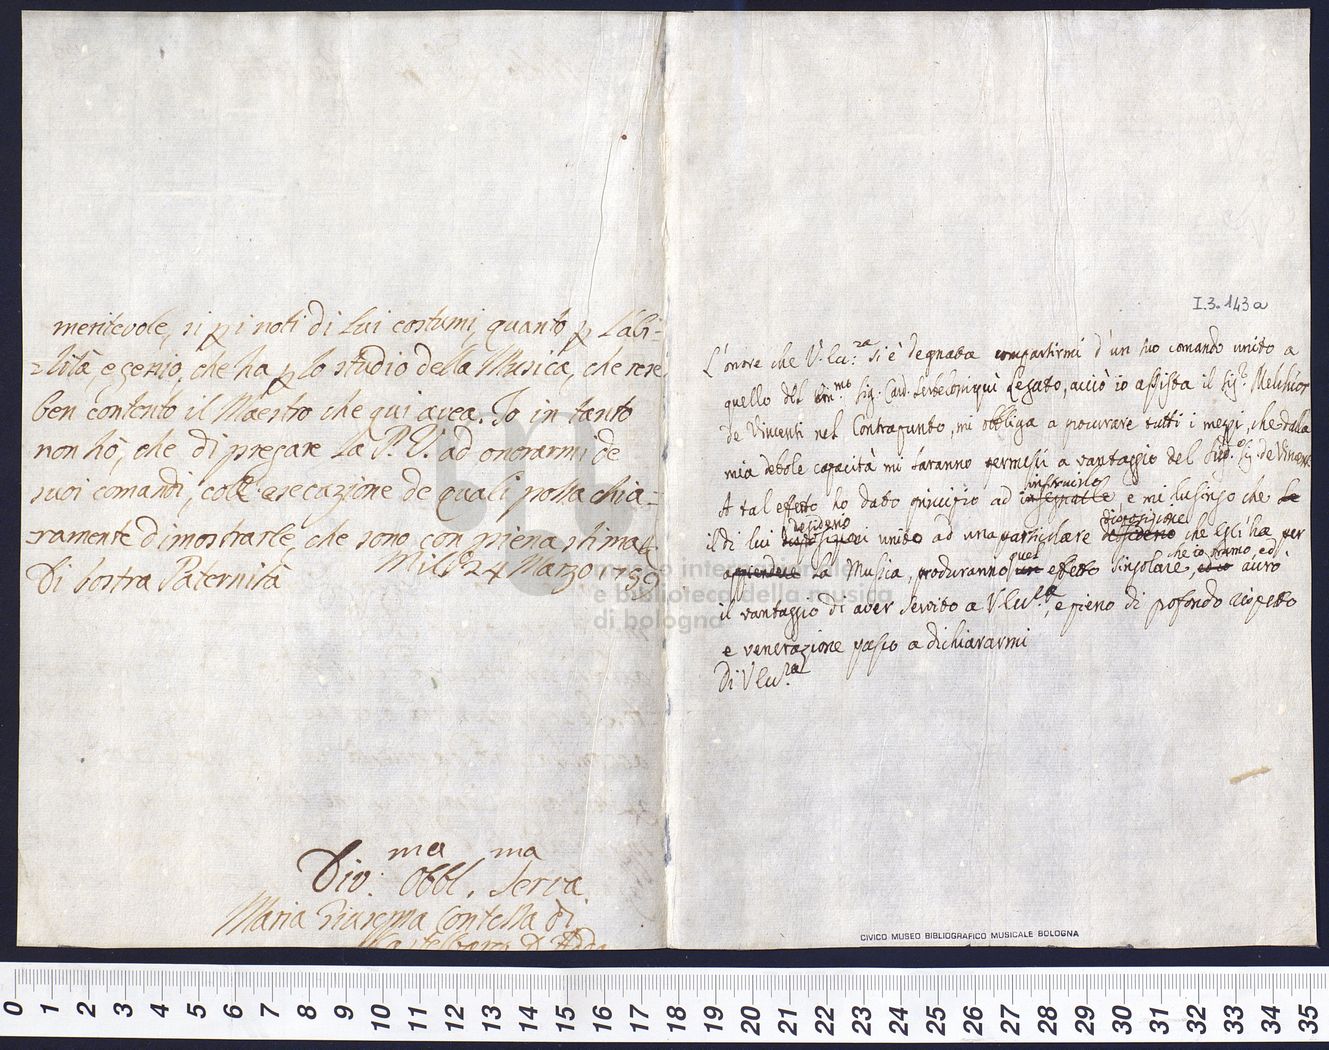 meritevole, si p i noti di lui costumi, quanto p l'abi-
lità, e genio, che ha p lo studio della Musica, che rese
ben contento il Maestro che qui avea. Io in tanto
non hò, che di pregare la P. V. ad onorarmi de
suoi comandi, coll' esecuzione de quali possa chia-
ramente dimostrarle, che sono con piena stima
Di Vostra Paternità
Milº 24 Marzo 1759
Div. Obbl.ma Serva
ma
Maria Giuseppa Contessa di
I.3.143a
L'onore che V. Eu.za si è degnata compartirmi d'un suo comando unito a
quello del Em.mo Sig. Card. Serbelloni quì Legato, acciò io assista il Sig.r Melchior
de Vincenti nel Contrapunto, mi obbliga a procurare tutti i mezzi, che dalla
mia debole capacità mi saranno permessi a vantaggio del Sig. de Vincenti
instruirlo
A tal effetto ho dato principio ad insegnarle e mi lusingo che le
desiderio disposizione
il di lui disposizioni unito ad una particolare desiderio che Egli ha per
quel che io bramo, ed
apprendere la Musica, produranno un effetto singolare, ed io avrò
il vantaggio di aver servito a V Eu.za, e pieno di profondo rispetto
e venerazione passo a dichiararmi
Di V Eu.za
museo internazionale
e biblioteca della musica
di bologna
CIVICO MUSEO BIBLIOGRAFICO MUSICALE BOLOGNA
0 1 2 3 4 5 6 7 8 9 10 11 12 13 14 15 16 17 18 19 20 21 22 23 24 25 26 27 28 29 30 31 32 33 34 35